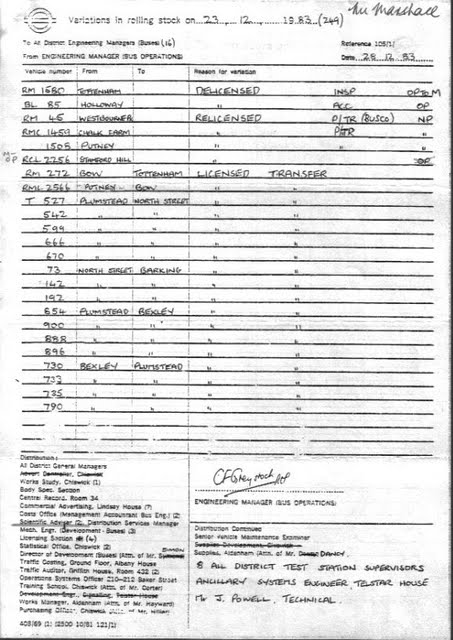 Mr Marshall
Variations in rolling stock on 23 . 12 . 1983 (249)
To All District Engineering Managers (Buses) (16) Reference 105/1/
From ENGINEERING MANAGER (BUS OPERATIONS) Date 28 12 83
Vehicle number From To Reason for variation
RM 1680 TOTTENHAM DELICENSED INSP OP TO M
BL 85 HOLLOWAY " ACC OP
RM 45 WESTBOURNE RELICENSED P/TR (BUSCO) NP
RMC 1459 CHALK FARM " P/TR "
1505 PUTNEY " " "
M-OP RCL 2256 STAMFORD HILL " OP
RM 272 BOW TOTTENHAM LICENSED TRANSFER
RML 2566 PUTNEY BOW " "
T 527 PLUMSTEAD NORTH STREET " "
542 " " " "
594 " " " "
666 " " " "
670 " " " "
73 NORTH STREET BARKING " "
142 " " " "
192 " " " "
854 PLUMSTEAD BEXLEY " "
900 " " " "
888 " " " "
896 " " " "
730 BEXLEY PLUMSTEAD " "
733 " " " "
735 " " " "
790 " " " "
Distribution:
All District General Managers
Advert Controller, Chiswick
Works Study, Chiswick (1)
Body Spec. Section
Central Record, Room 34
Commercial Advertising, Lindsey House (7)
Costs Office (Management Accountant Bus Eng.) (2)
Scientific Adviser (2) Distribution Services Manager
Mech. Engr. (Development - Buses) (3)
Licensing Section (4)
Statistical Office, Chiswick (2)
Director of Development (Buses) (Attn. of Mr.
Traffic Costing, Ground Floor, Albany House
Traffic Auditor, Griffith House, Room 432 (2)
Operations Systems Officer 210-212 Baker Street
Training School, Chiswick (Attn. of Mr. Carter)
Development Engr., Signalling, Telstar House
Works Manager, Aldenham (Attn. of Mr. Hayward)
Purchasing Officer, Chiswick
403/69 (1) (2500 10/81 121/1)
CF Greystock
ENGINEERING MANAGER (BUS OPERATIONS)
Distribution Continued
Senior Vehicle Maintenance Examiner
Supplies Development, Chiswick
Supplies, Aldenham (Attn. of Mr. DANCY.
8 ALL DISTRICT TEST STATION SUPERVISORS
ANCILLARY SYSTEMS ENGINEER, TELSTAR HOUSE
Mr J. POWELL, TECHNICAL.